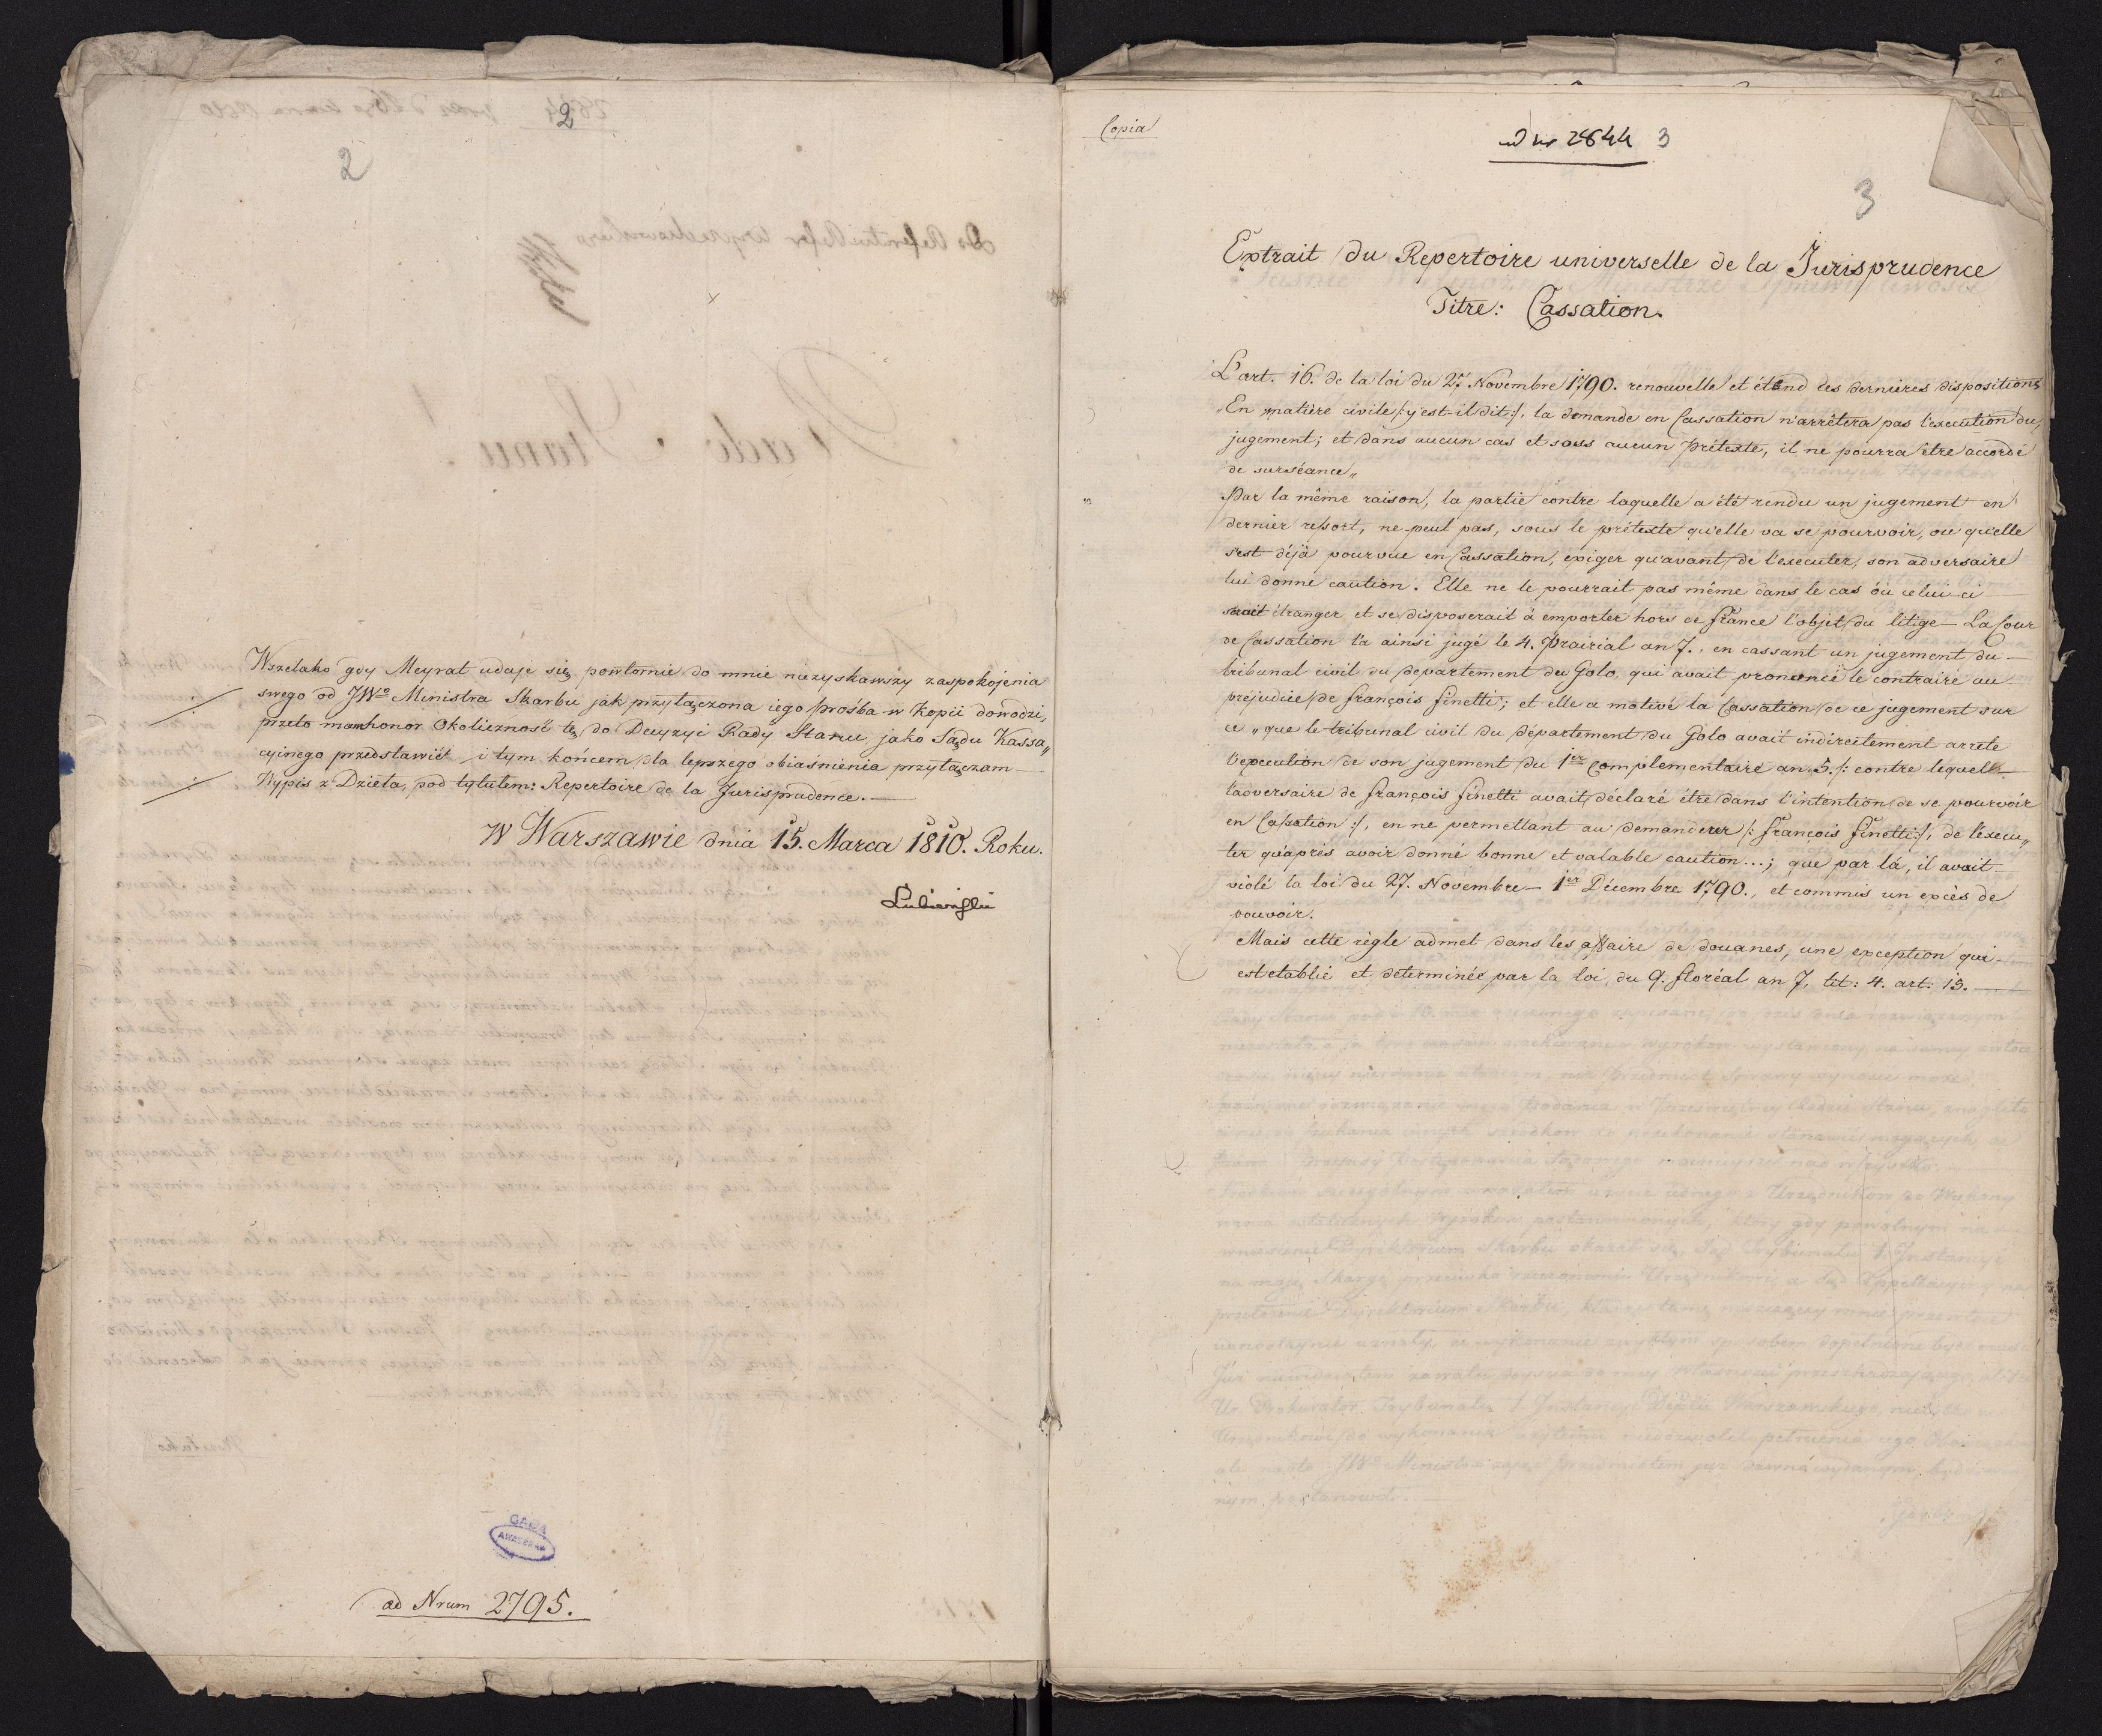 2
2
Wszelako gdy Meyrat udaje się powtornie do mnie niezyskawszy zaspokojenia
swego od JWo Ministra Skarbu jak przyłączona iego prośba w Kopii dowodzi,
przeto mam honor Okoliczność tę do Decyzyi Rady Stanu jako Sądu Kassa„
cyinego przedstawić i tym końcem dla lepszego obiasnienia przyłączam
Wypis z Dzieła, pod tytułem: Repertoire de la Jurisprudence.
W Warszawie dnia 15. Marca 1810. Roku.
Łubieński
ad Nrum 2795.
Copia
ad nr 2644 3
3
Extrait du Repertoire universelle de la Jurisprudence
Titre: Cassation.
L'art. 16. de la loi du 27. Novembre 1790. renouvelle et étend les dernières dispositions
„En matière civile /: y est-il dit :/, la demande en Cassation n'arrêtera pas l'execution du
jugement; et dans aucun cas et sous aucun prétexte, il ne pourra être accordé
de surséance„
Par la même raison, la partie contre laquelle a été rendu un jugement en
dernier ressort, ne peut pas, sous le prétexte qu'elle va se pourvoir, ou qu'elle
s'est déjà pourvue en Cassation, exiger qu'avant de l'executer, son adversaire
lui donne caution. Elle ne le pourrait pas même dans le cas où celui-ci
serait étranger et se disposerait à emporter hors de France l'objet du litige — La Cour
de Cassation l'a ainsi jugé le 4. Prairial an 7., en cassant un jugement du
tribunal civil du département du Golo, qui avait prononcé le contraire au
préjudice de françois finetti; et elle a motivé la Cassation de ce jugement sur
ce „que le tribunal civil du département du Golo avait indirectement arrêté
l'execution de son jugement du 1er complementaire an 5. /: contre lequel
l'adversaire de françois finetti avait déclaré être dans l'intention de se pourvoir
en Cassation :/, en ne permettant au demandeur /: françois finetti :/, de l'execu„
ter qu'après avoir donné bonne et valable caution...; que par là, il avait
violé la loi du 27. Novembre — 1er Décembre 1790., et commis un excès de
pouvoir.
Mais cette règle admet dans les affaire de douanes, une exception qui
est etablie et determinée par la loi, du 9. floréal an 7, tit: 4. art: 15.